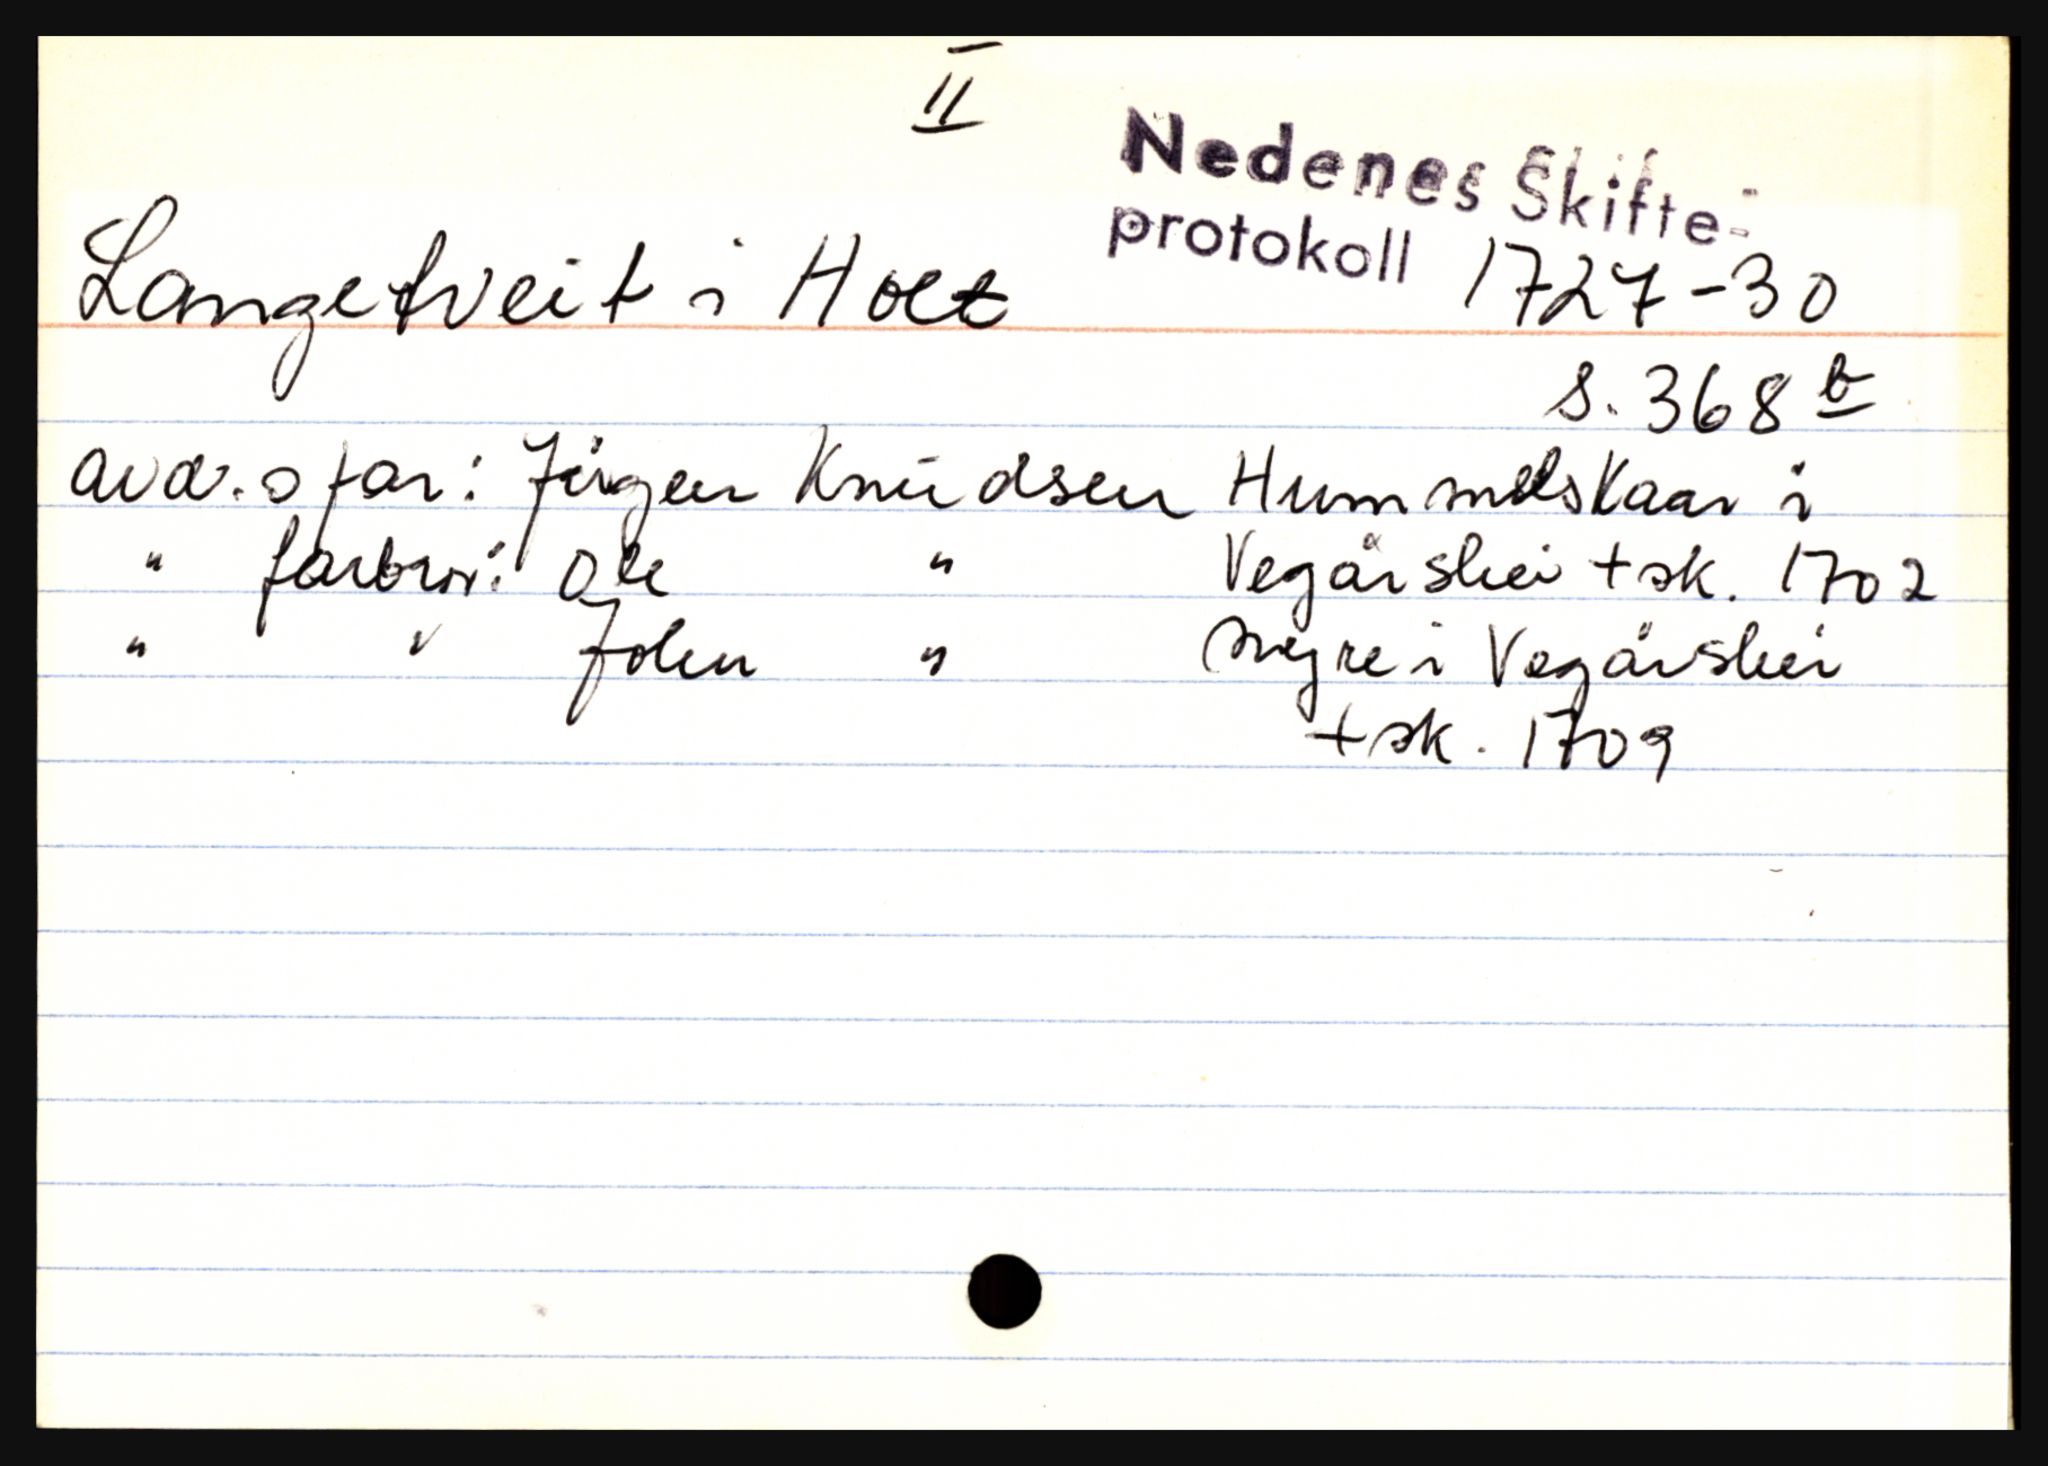 II
Nedenes Skifte-
protokoll 1727-30
Langetveit i Holt
s. 368 b
avd. s far: Jürgen Knudsen Hummelskaar i
" farbror: Ole " Vegårshei + sk. 1702
" " John " Myre i Vegårshei
+ sk. 1709